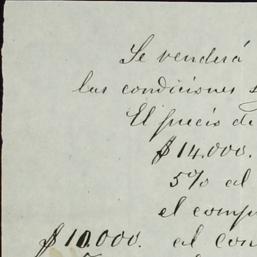 Se venderá
las condiciones
El precio de
$14.000.
5% al
el comp
$10.000. al con